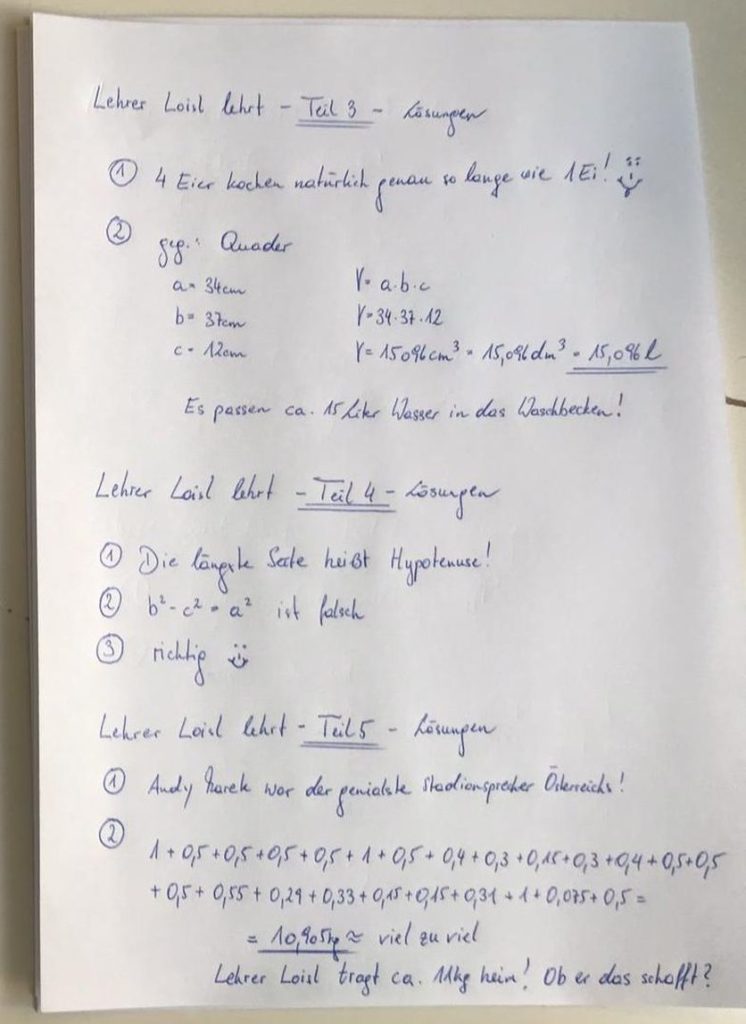 Lehrer Loisl lehrt - Teil 3 - Lösungen
① 4 Eier kochen natürlich genau so lange wie 1 Ei!
② geg.: Quader
a = 34cm V = a·b·c
b = 37cm V = 34·37·12
c = 12cm V = 15096cm³ = 15,096dm³ = 15,096 l
Es passen ca. 15 Liter Wasser in das Waschbecken!
Lehrer Loisl lehrt - Teil 4 - Lösungen
① Die längste Seite heißt Hypotenuse!
② b² - c² = a² ist falsch
③ richtig
Lehrer Loisl lehrt - Teil 5 - Lösungen
① Andy Marek war der genialste Stadionsprecher Österreichs!
②
1 + 0,5 + 0,5 + 0,5 + 0,5 + 1 + 0,5 + 0,4 + 0,3 + 0,15 + 0,3 + 0,4 + 0,5 + 0,5
+ 0,5 + 0,55 + 0,29 + 0,33 + 0,15 + 0,15 + 0,31 + 1 + 0,075 + 0,5 =
= 10,905kg ≈ viel zu viel
Lehrer Loisl tragt ca. 11kg heim! Ob er das schafft?